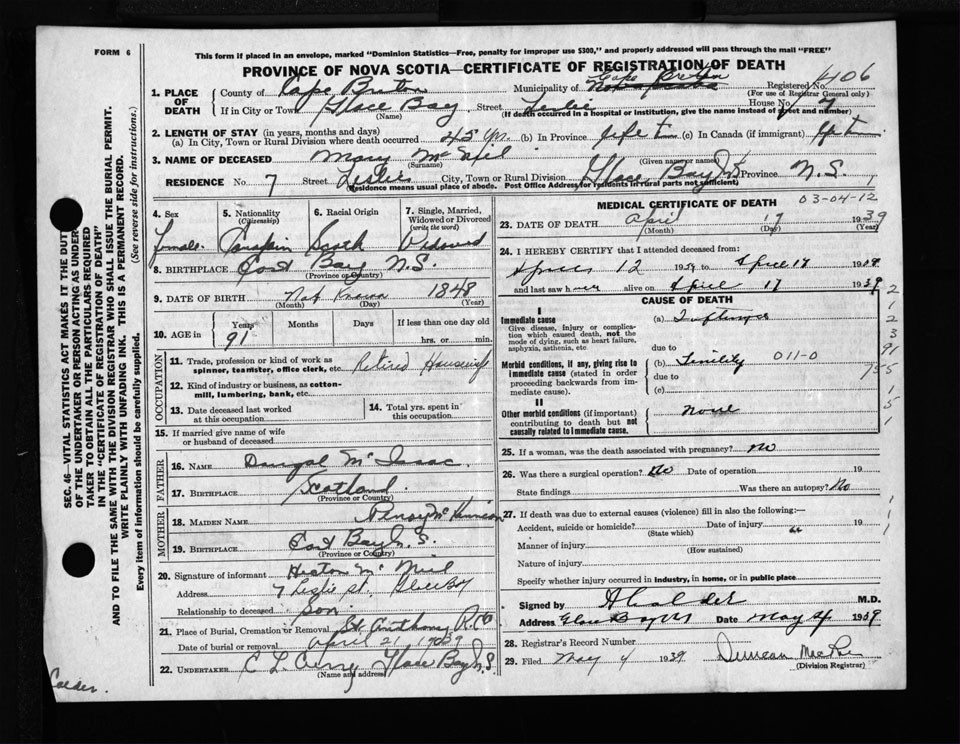 FORM 6
This form if placed in an envelope, marked "Dominion Statistics—Free, penalty for improper use $300," and properly addressed will pass through the mail "FREE"
PROVINCE OF NOVA SCOTIA—CERTIFICATE OF REGISTRATION OF DEATH
406
1. PLACE OF DEATH
County of Cape Breton Municipality of Cape Breton Registered No.
(For use of Registrar General only)
If in City or Town Glace Bay Street Leslie House No. 7
(Name) (If death occurred in a hospital or institution, give the name instead of street and number)
2. LENGTH OF STAY (in years, months and days)
(a) In City, Town or Rural Division where death occurred 45 yr. (b) In Province life t (c) In Canada (if immigrant)
3. NAME OF DECEASED Mary Mc
(Surname) (Given name or names)
RESIDENCE No. 7 Street Leslie City, Town or Rural Division Glace Bay Province N.S.
(Residence means usual place of abode. Post Office Address for residents in rural parts not sufficient)
4. Sex female.
5. Nationality (Citizenship) Canadian
6. Racial Origin Scotch
7. Single, Married, Widowed or Divorced (write the word) Widowed
8. BIRTHPLACE East Bay N.S.
(Province or Country)
9. DATE OF BIRTH Not Known 1848
(Month) (Day) (Year)
10. AGE in Years 91 Months Days If less than one day old hrs. or min.
OCCUPATION
11. Trade, profession or kind of work as spinner, teamster, office clerk, etc. Retired Housewife
12. Kind of industry or business, as cotton-mill, lumbering, bank, etc.
13. Date deceased last worked at this occupation
14. Total yrs. spent in this occupation
15. If married give name of wife or husband of deceased
FATHER
16. NAME Dougal McIsaac
17. BIRTHPLACE Scotland
(Province or Country)
MOTHER
18. MAIDEN NAME McKinnon
19. BIRTHPLACE East Bay N.S.
(Province or Country)
20. Signature of informant Hector McNeil
Address 7 Leslie St., Glace Bay
Relationship to deceased Son
21. Place of Burial, Cremation or Removal St. Anthony R.C.
Date of burial or removal April 21 1939
22. UNDERTAKER C L Curry Glace Bay N.S.
(Name and address)
MEDICAL CERTIFICATE OF DEATH
03-04-12
23. DATE OF DEATH April 17 1939
(Month) (Day) (Year)
24. I HEREBY CERTIFY that I attended deceased from:
April 12 1939 to April 17 1939
and last saw her alive on April 17 1939
CAUSE OF DEATH
I
Immediate cause
Give disease, injury or complication which caused death, not the mode of dying, such as heart failure, asphyxia, asthenia, etc
(a) Influenza
due to
Morbid conditions, if any, giving rise to immediate cause (stated in order proceeding backwards from immediate cause).
(b) Senility 011-0
due to
(c)
II
Other morbid conditions (if important) contributing to death but not causally related to immediate cause.
None
2
1
2
3
91
755
1
5
1
25. If a woman, was the death associated with pregnancy? No
26. Was there a surgical operation? No Date of operation 19
State findings Was there an autopsy? No
27. If death was due to external causes (violence) fill in also the following:—
Accident, suicide or homicide? Date of injury 19
(State which)
Manner of injury
(How sustained)
Nature of injury
Specify whether injury occurred in industry, in home, or in public place
1
1
1
Signed by A Calder M.D.
Address Glace Bay NS Date May 4 1939
28. Registrar's Record Number
29. Filed May 4 1939 Duncan MacRae
(Division Registrar)
Calder.
SEC. 46—VITAL STATISTICS ACT MAKES IT THE DUTY
OF THE UNDERTAKER OR PERSON ACTING AS UNDER-
TAKER TO OBTAIN ALL THE PARTICULARS REQUIRED
IN THE "CERTIFICATE OF REGISTRATION OF DEATH" AND TO FILE THE SAME WITH THE DIVISION REGISTRAR WHO SHALL ISSUE THE BURIAL PERMIT.
WRITE PLAINLY WITH UNFADING INK. THIS IS A PERMANENT RECORD.
Every item of information should be fully supplied. (See reverse side for instructions.)